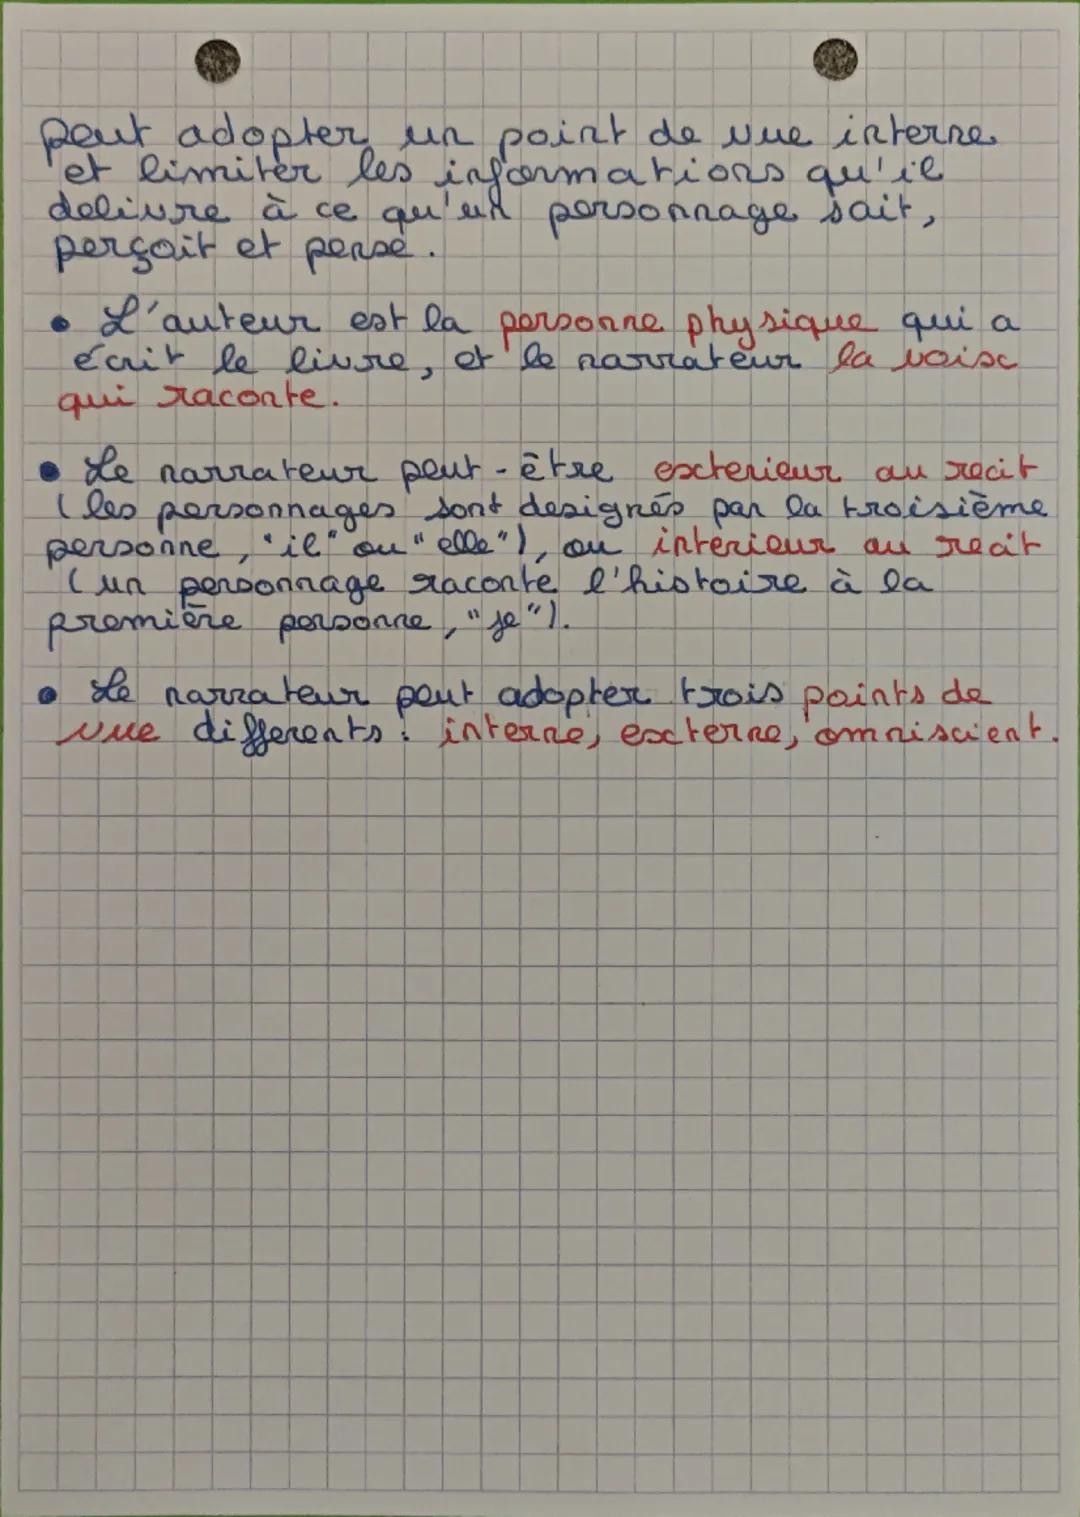 peut adopter un point de vue interne
et limiter les informations qu'il
delivre à ce qu'un personnage sait,
perçoit et pense.
• L'auteur est la personne physique qui a
écrit le livre, et le narrateur la voix
qui raconte.
• Le narrateur peut-être exterieur au recit
(les personnages sont designés par la troisième
personne, "il" ou "elle"), ou interieur au recit
(un personnage raconte l'histoire à la
première personne, "je").
• Le narrateur peut adopter trois points de
vue differents : interne, externe, omniscient.